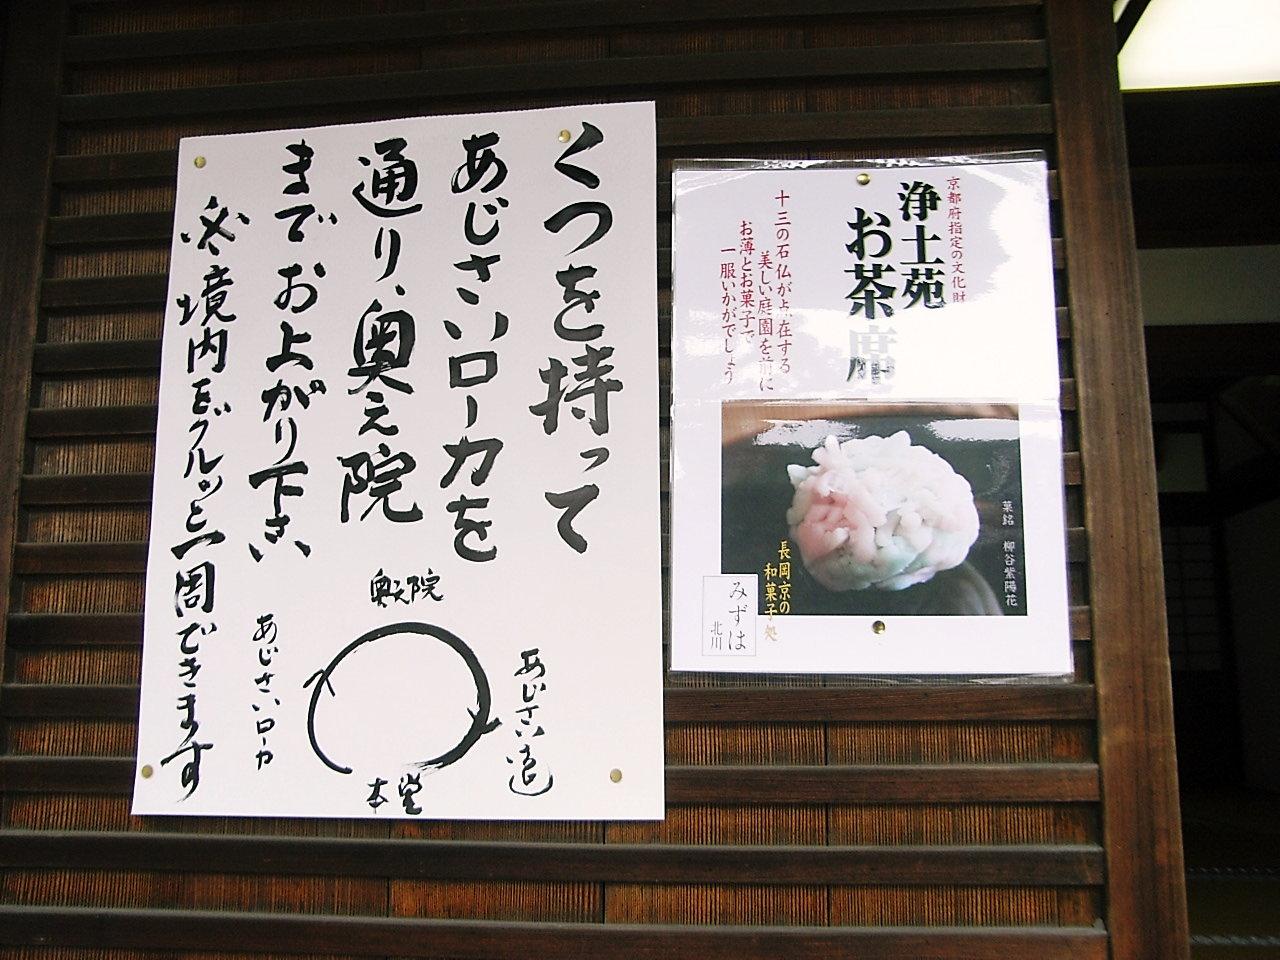 くつを持って
あじさいローカを
通り、奥之院
までお上がり下さい
※境内をグルッと一周できます
奥之院
あじさい道
あじさいローカ
本堂
京都府指定の文化財
浄土苑
お茶席
十三の石仏が点在する
美しい庭園を前に
お薄とお菓子で
一服いかがでしょう
菓銘 柳谷紫陽花
長岡京の
和菓子処
みずは
北川